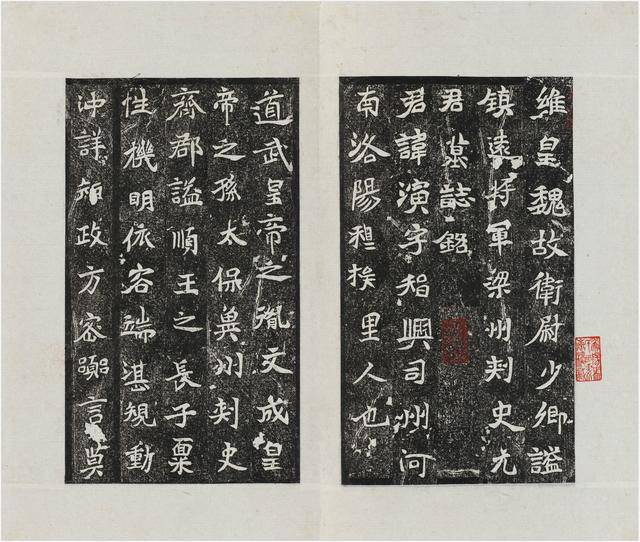 維皇魏故衛尉少卿謚
鎮遠將軍梁州刾史元
君墓誌銘
君諱演字智興司州河
南洛陽穆族里人也
道武皇帝之胤文成皇
帝之孫太保冀州刾史
齊郡謚順王之長子稟
性機明依容端湛規動
沖詳政方密言莫